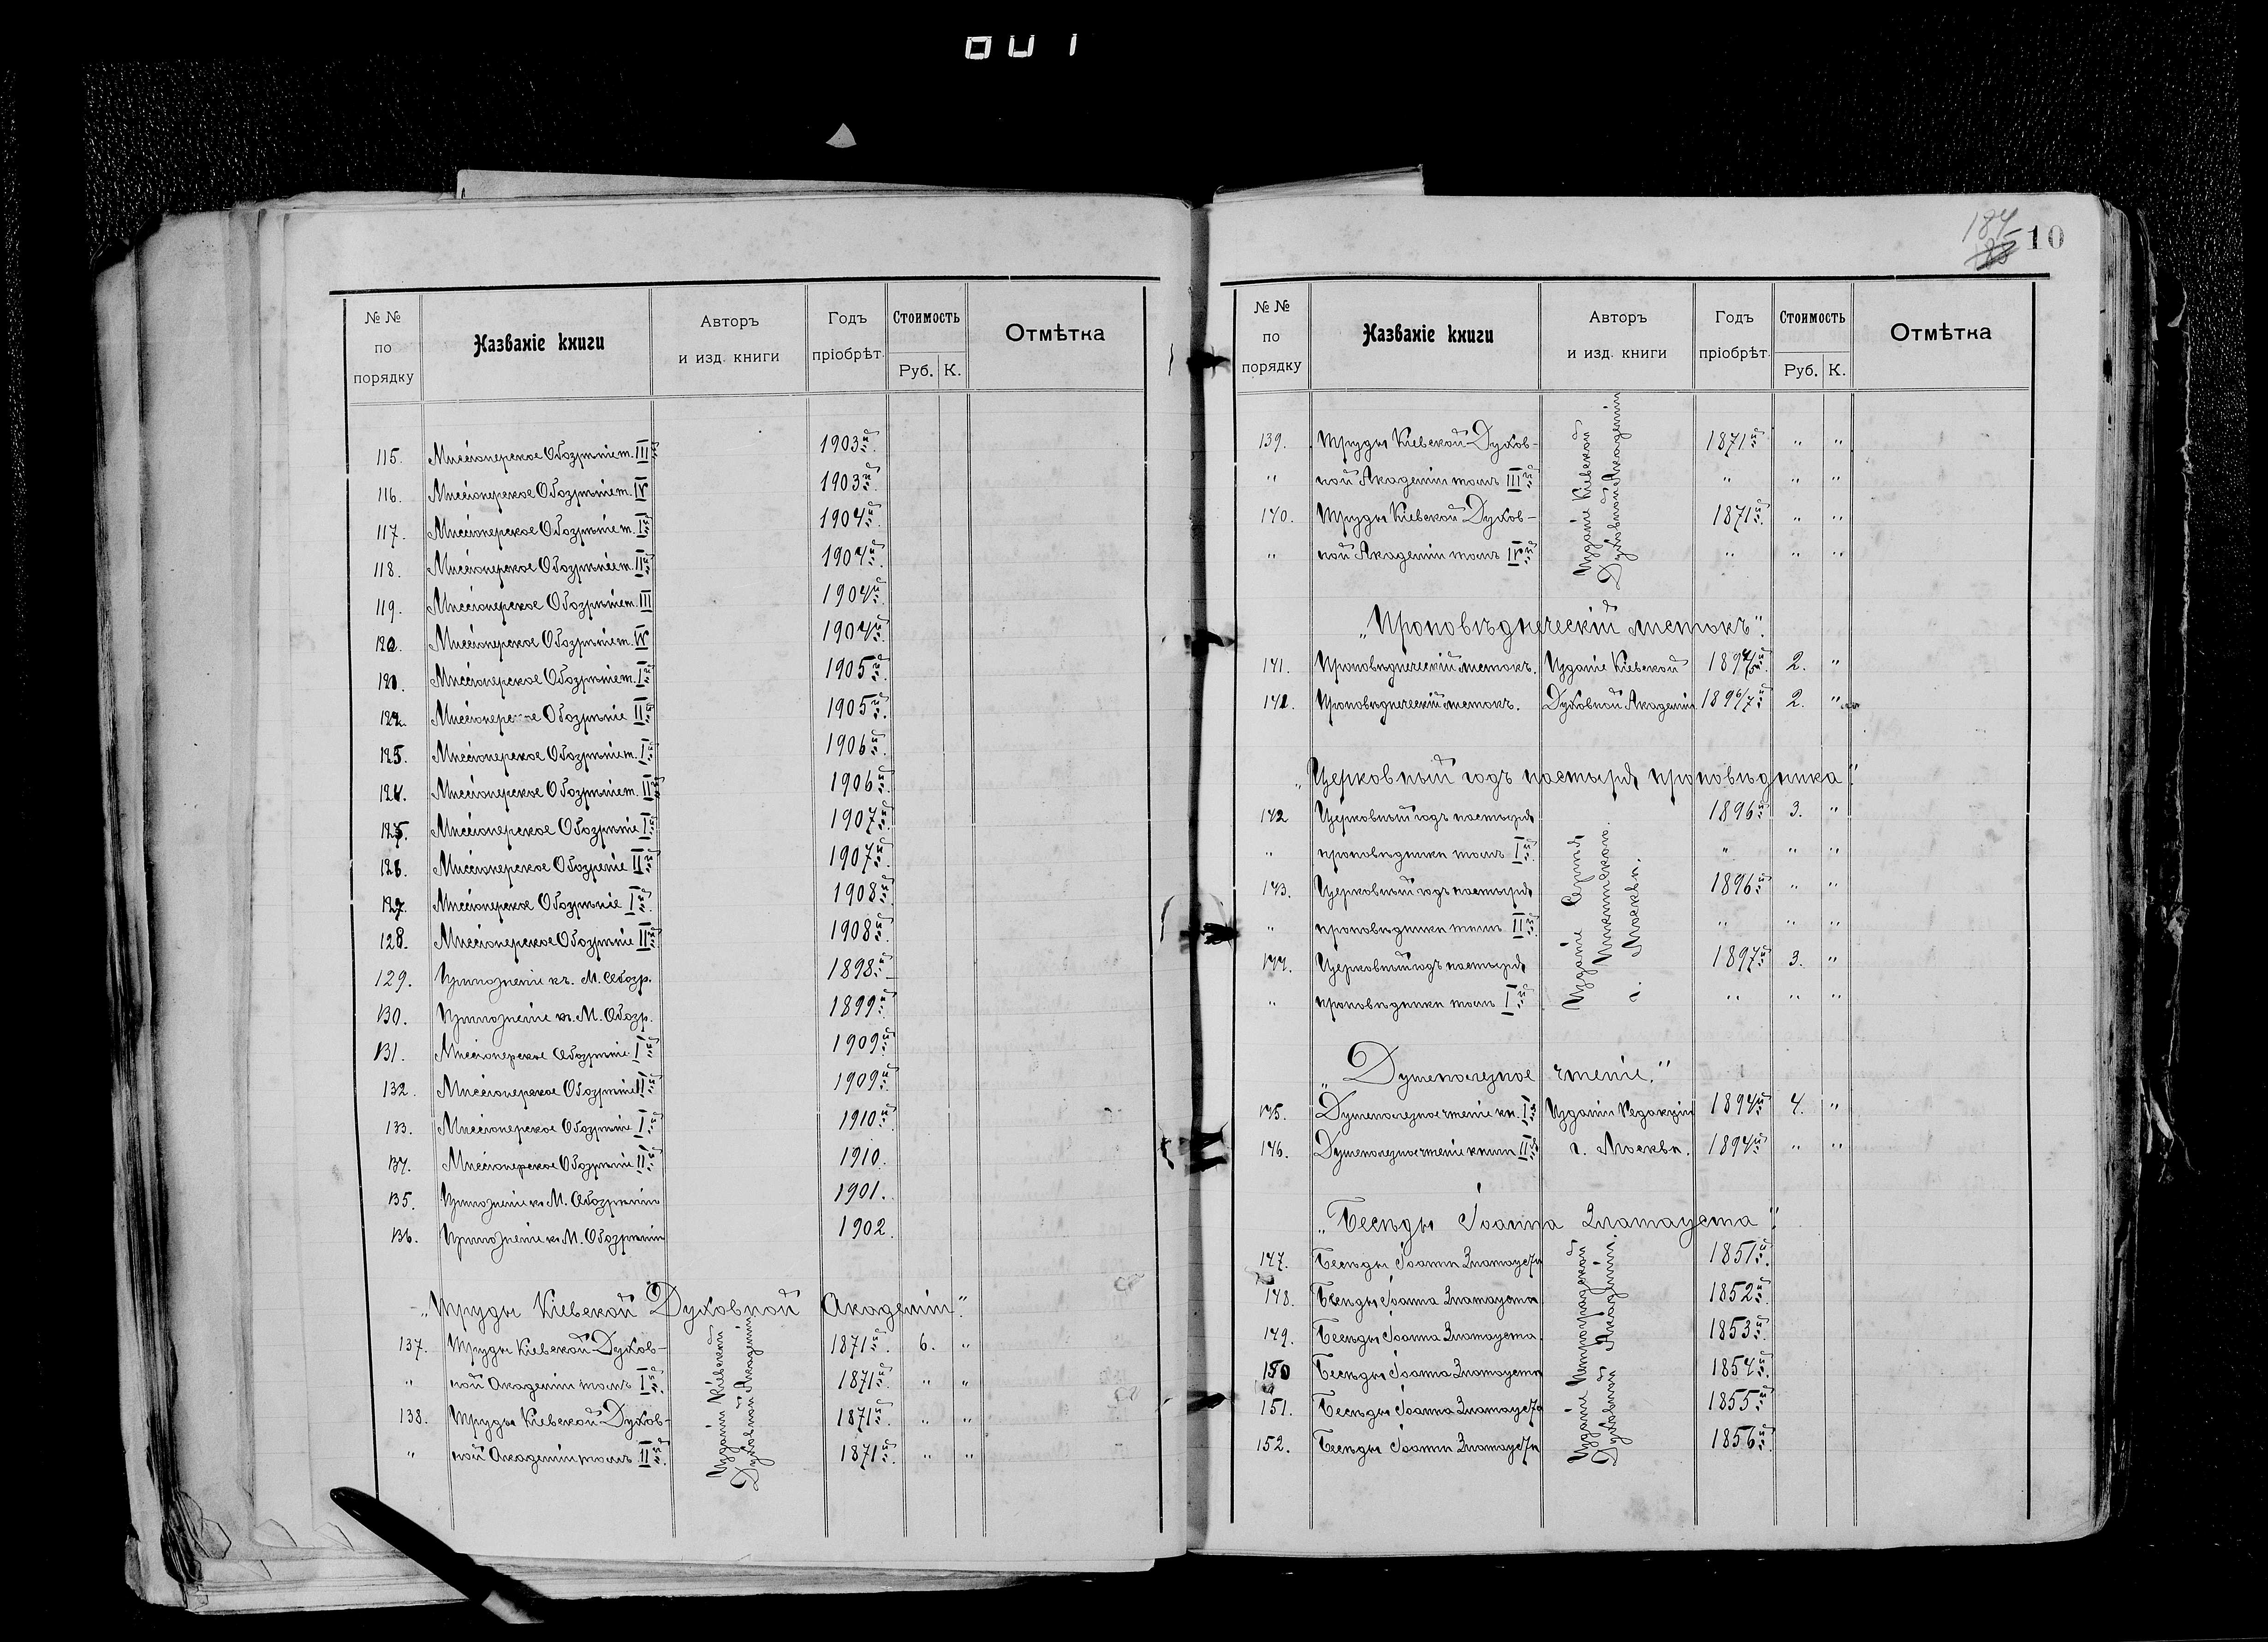 184
185
10
№ №
по
порядку
Названіе книги
Авторъ
и изд. книги
Годъ
пріобрѣт.
Стоимость
Руб. К.
Отмѣтка
115. Миссіонерское Обозрѣніе т. III й 1903 й
116. Миссіонерское Обозрѣніе т. IV 1903 й
117. Миссіонерское Обозрѣніе т. I й 1904 й
118. Миссіонерское Обозрѣніе т. II й 1904 й
119. Миссіонерское Обозрѣніе т. III 1904 й
120. Миссіонерское Обозрѣніе т. IV 1904 й
121. Миссіонерское Обозрѣніе т. I й 1905 й
122. Миссіонерское Обозрѣніе II й 1905 й
123. Миссіонерское Обозрѣніе т. I й 1906 й
124. Миссіонерское Обозрѣніе т. II й 1906 й
125. Миссіонерское Обозрѣніе I й 1907 й
126. Миссіонерское Обозреніе II й 1907 й
127. Миссіонерское Обозрѣніе I й 1908 й
128. Миссіонерское Обозрѣніе II й 1908 й
129. Приложеніе къ. М. Обозр. 1898 й
130. Приложеніе къ. М. Обозр. 1899 й
131. Миссіонерское Обозрѣніе I й 1909 й
132. Миссіонерское Обозрѣніе II й 1909 й
133. Миссіонерское Обозрѣніе I й 1910 й
134. Миссіонерское Обозрѣніе II й 1910.
135. Приложеніе къ М. Обозрѣнію 1901.
136. Приложеніе къ М. Обозрѣнію 1902.
„Труды Кіевской Духовной Академіи".
137. Труды Кіевской Духов- 1871 й 6. "
" ной Академіи томъ I й. 1871 й " "
138. Труды Кіевской Духов- 1871 й " "
" ной Академіи томъ II й. 1871 й " "
Изданіе Кіевской
Духовной Академіи
№ №
по
порядку
Названіе книги
Авторъ
и изд. книги
Годъ
пріобрѣт.
Стоимость
Руб. К.
Отмѣтка
139. Труды Кіевской Духов- 1871 й " "
" ной Академіи томъ III й " " "
140. Труды Кіевской Духов- 1871 й " "
" ной Академіи томъ IV й " " "
Изданіе Кіевской
Духовной Академіи
„Проповѣдническій листокъ".
141. Проповѣдническій листокъ. Изданіе Кіевской 1894/5 й 2. "
142. Проповѣдническій листокъ. Духовной Академіи 1896/7 й 2. "
„Церковный годъ пастыря проповѣдника".
142 Церковный годъ пастыря 1896 й 3. "
" проповѣдника томъ I й " " "
143. Церковный годъ пастыря 1896 й " "
" проповѣдника томъ II й " " "
144. Церковный годъ пастыря 1897 й 3. "
" проповѣдника томъ I й " " "
Изданіе Сергѣя
г. Москва.
„Душеполезное чтеніе."
145. Душеполезное чтеніе кн. I я Изданіе Редакціи 1894 й 4. "
146. Душеполезное чтеніе книга II я г. Москва. 1894 й " "
„Бесѣды Іоанна Златоуста".
147. Бесѣды Іоанна Златоуста 1851 й
148. Бесѣды Іоанна Златоуста 1852 й
149. Бесѣды Іоанна Златоуста. 1853 й
150 Бесѣды Іоанна Златоуста 1854 й
151. Бесѣды Іоанна Златоуста 1855 й
152. Бесѣды Іоанна Златоуста 1856 й
Изданіе Петроградской
Духовной Академіи.